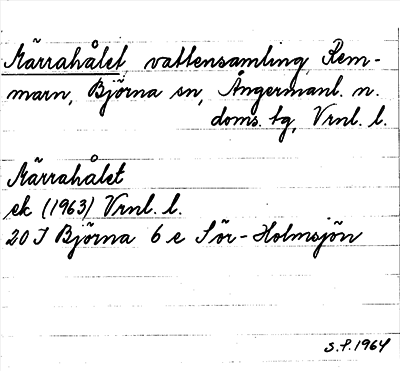 Märrahålet, vattensamling, Rem-
marn, Björna sn, Ångermanl. n.
doms. tg, Vrnl. l.
Märrahålet
ek (1963) Vrnl. l.
20 J Björna 6 e Sör-Holmsjön
S.P. 1964